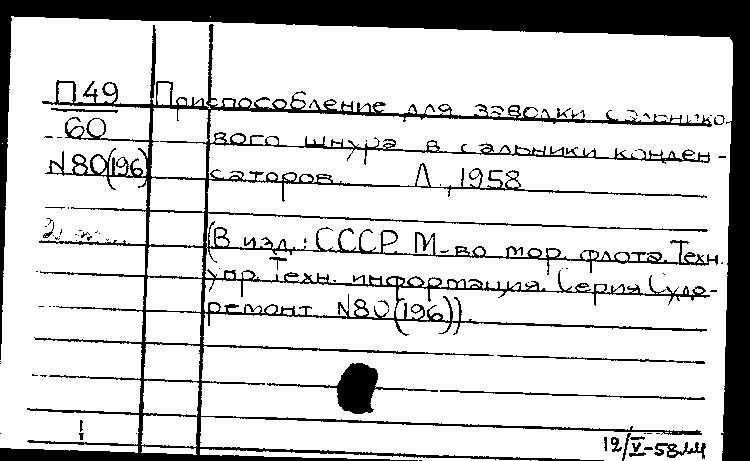 П.49
60
N80(196)
Приспособление для заводки сальнико-
вого шнура в сальники конден-
саторов. Л., 1958
(В изд.: СССР. М-во мор. флота. Техн.
упр. Техн. информация. Серия Судо-
ремонт N80(196)).
12/V-58